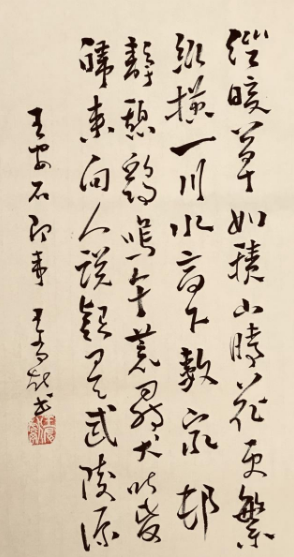 徑暖草如積山晴花更繁
縱橫一川水高下數家邨
靜憩鷄鳴午荒尋犬吠昏
歸來向人說疑是武陵源
王安石即事